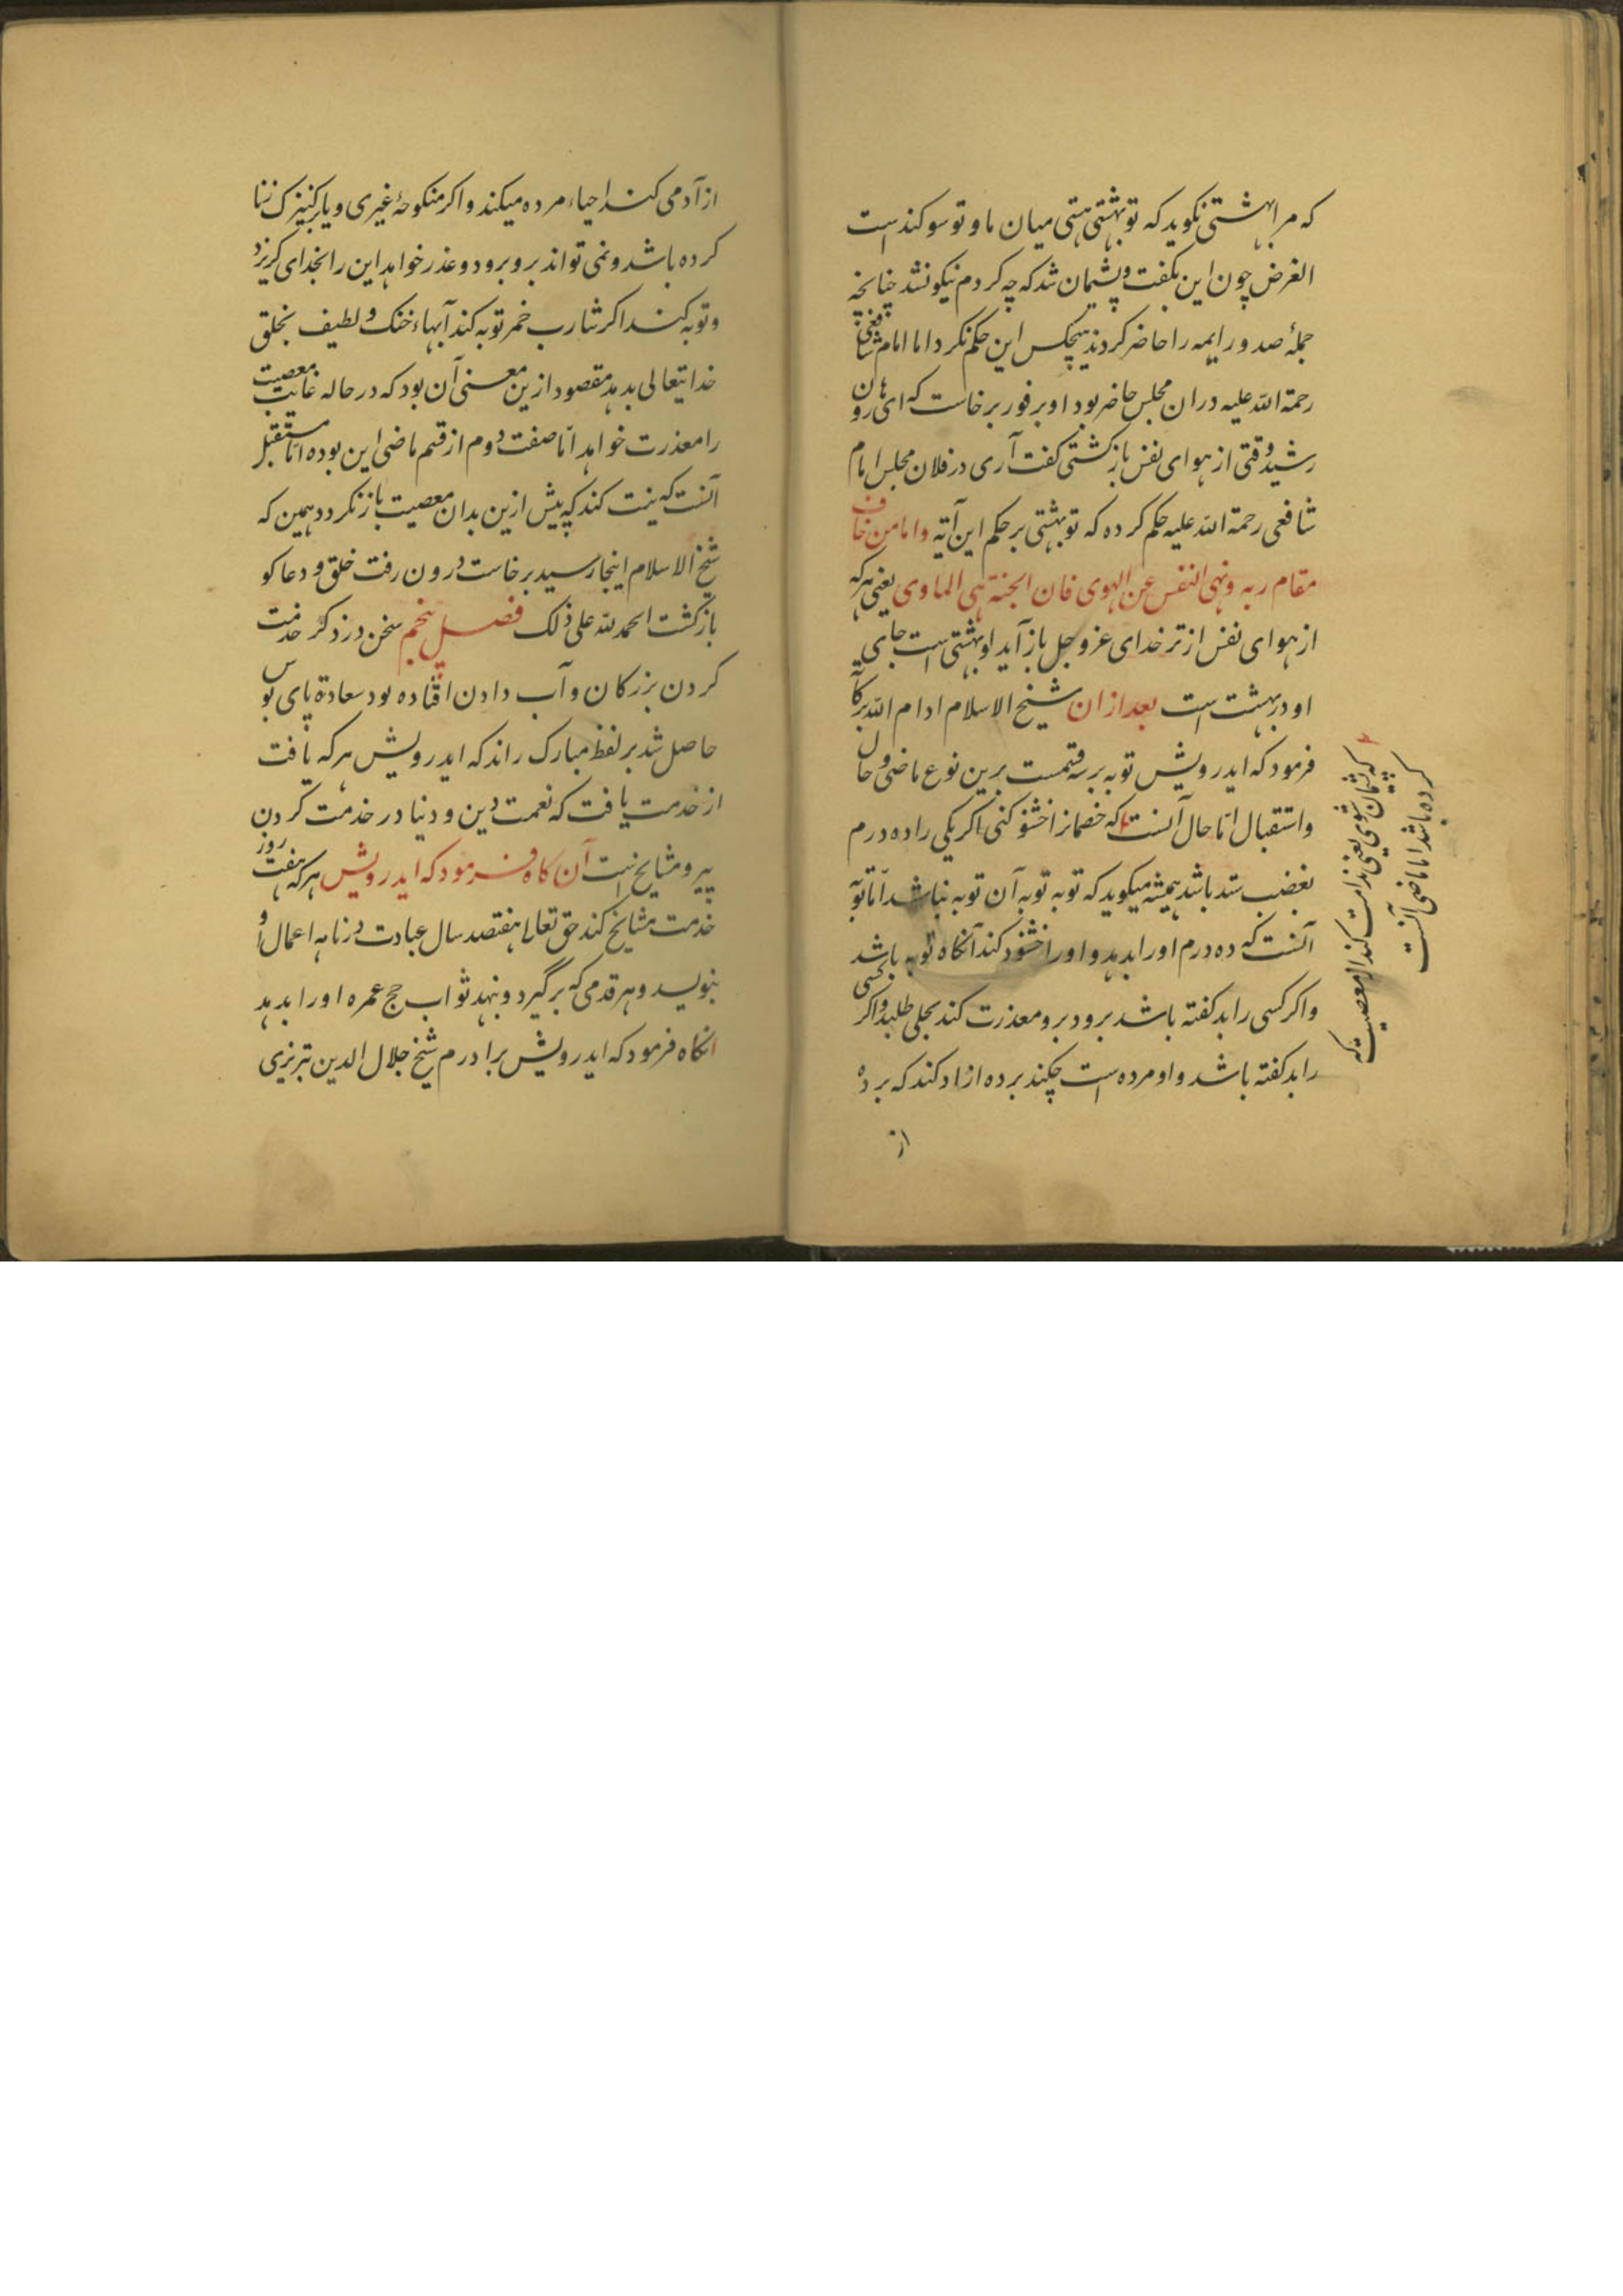 که مرا بهشتی نکوید که تو بهشتی هستی میان ما و تو سوکندست
الغرض چون این بکفت و پشیمان شد که چه کردم نیکو نشد چنانچه
جملهٔ صدور ایمه را حاضر کردند هیچکس این حکم نکرد اما امام شافعی
رحمة الله علیه دران مجلس حاضر بود او بر فور برخاست که ای هارون
رشید وقتی از هوای نفس باز کشتی کفت آری در فلان مجلس امام
شافعی رحمة الله علیه حکم کرده که تو بهشتی بر حکم این آیة واما من خاف
مقام ربه ونهی النفس عن الهوی فان الجنة هی الماوی یعنی هر که
از هوای نفس از ترس خدای عز و جل باز آید او بهشتی است جای
او در بهشت است بعد ازان شیخ الاسلام ادام الله برکاته
فرمود که ایدرویش توبه بر سه قسمست برین نوع ماضی و حال
و استقبال اما حال آنست که خصمانرا خشنود کنی اکر یکی را ده درم
بغضب ستد باشد همیشه میکوید که توبه توبه آن توبه نباشد اما توبه
آنست که ده درم او را بدهد و او را خشنود کند آنکاه توبه باشد
و اکر کسی را بد کفته باشد برود برو معذرت کند بحلی طلبد و اکر کسی
را بد کفته باشد و او مرده است چکند برده ازاد کند که برده
از
که پشیمان شوی یعنی ندامت کند از معصیت که
کرده باشد اما ماضی آنست
از آدمی کند احیاء مرده میکند و اکر منکوحهٔ غیری و یا بر کنیزک زنا
کرده باشد و نمی تواند برو برود و عذر خواهد این را بخدای کریزد
و توبه کند اکر شارب خمر توبه کند آبهاء خنک و لطیف بخلق
خدایتعالی بدهد مقصود ازین معنی آن بود که در حاله غایب معصیت
را معذرت خواهد اما صفت دوم از قسم ماضی این بوده اما مستقبل
آنست که نیت کند که پیش ازین بدان معصیت باز نکردد همین که
شیخ الاسلام اینجا رسید برخاست درون رفت خلق و دعاکو
بازکشت الحمد لله علی ذلک فصل پنجم سخن در ذکر خدمت
کردن بزرکان و آب دادن افتاده بود سعادة پای بوس
حاصل شد بر لفظ مبارک راند که ایدرویش هر که یافت
از خدمت یافت که نعمت دین و دنیا در خدمت کردن
پیر و مشایخ است آن کاه فرمود که ایدرویش هر که هفت روز
خدمت مشایخ کند حق تعالی هفتصد سال عبادت در نامه اعمال او
بنویسد و هر قدمی که برگیرد و بنهد ثواب حج عمره او را بدهد
انکاه فرمود که ایدرویش برادرم شیخ جلال الدین تبریزی